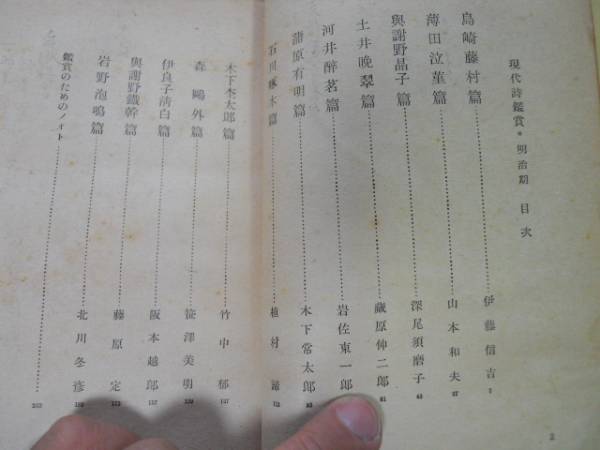 現代詩鑑賞・明治期 目次
島崎藤村篇……伊藤信吉
薄田泣菫篇……山本和夫
與謝野晶子篇……深尾須磨子
土井晚翠篇……蔵原伸二郎
河井醉茗篇……岩佐東一郎
蒲原有明篇……木下常太郎
石川啄木篇……植村諦
木下杢太郎篇……竹中郁
森鷗外篇……笹澤美明
伊良子清白篇……阪本越郎
與謝野鐵幹篇……藤原定
岩野泡鳴篇……北川冬彦
鑑賞のためのノイト……